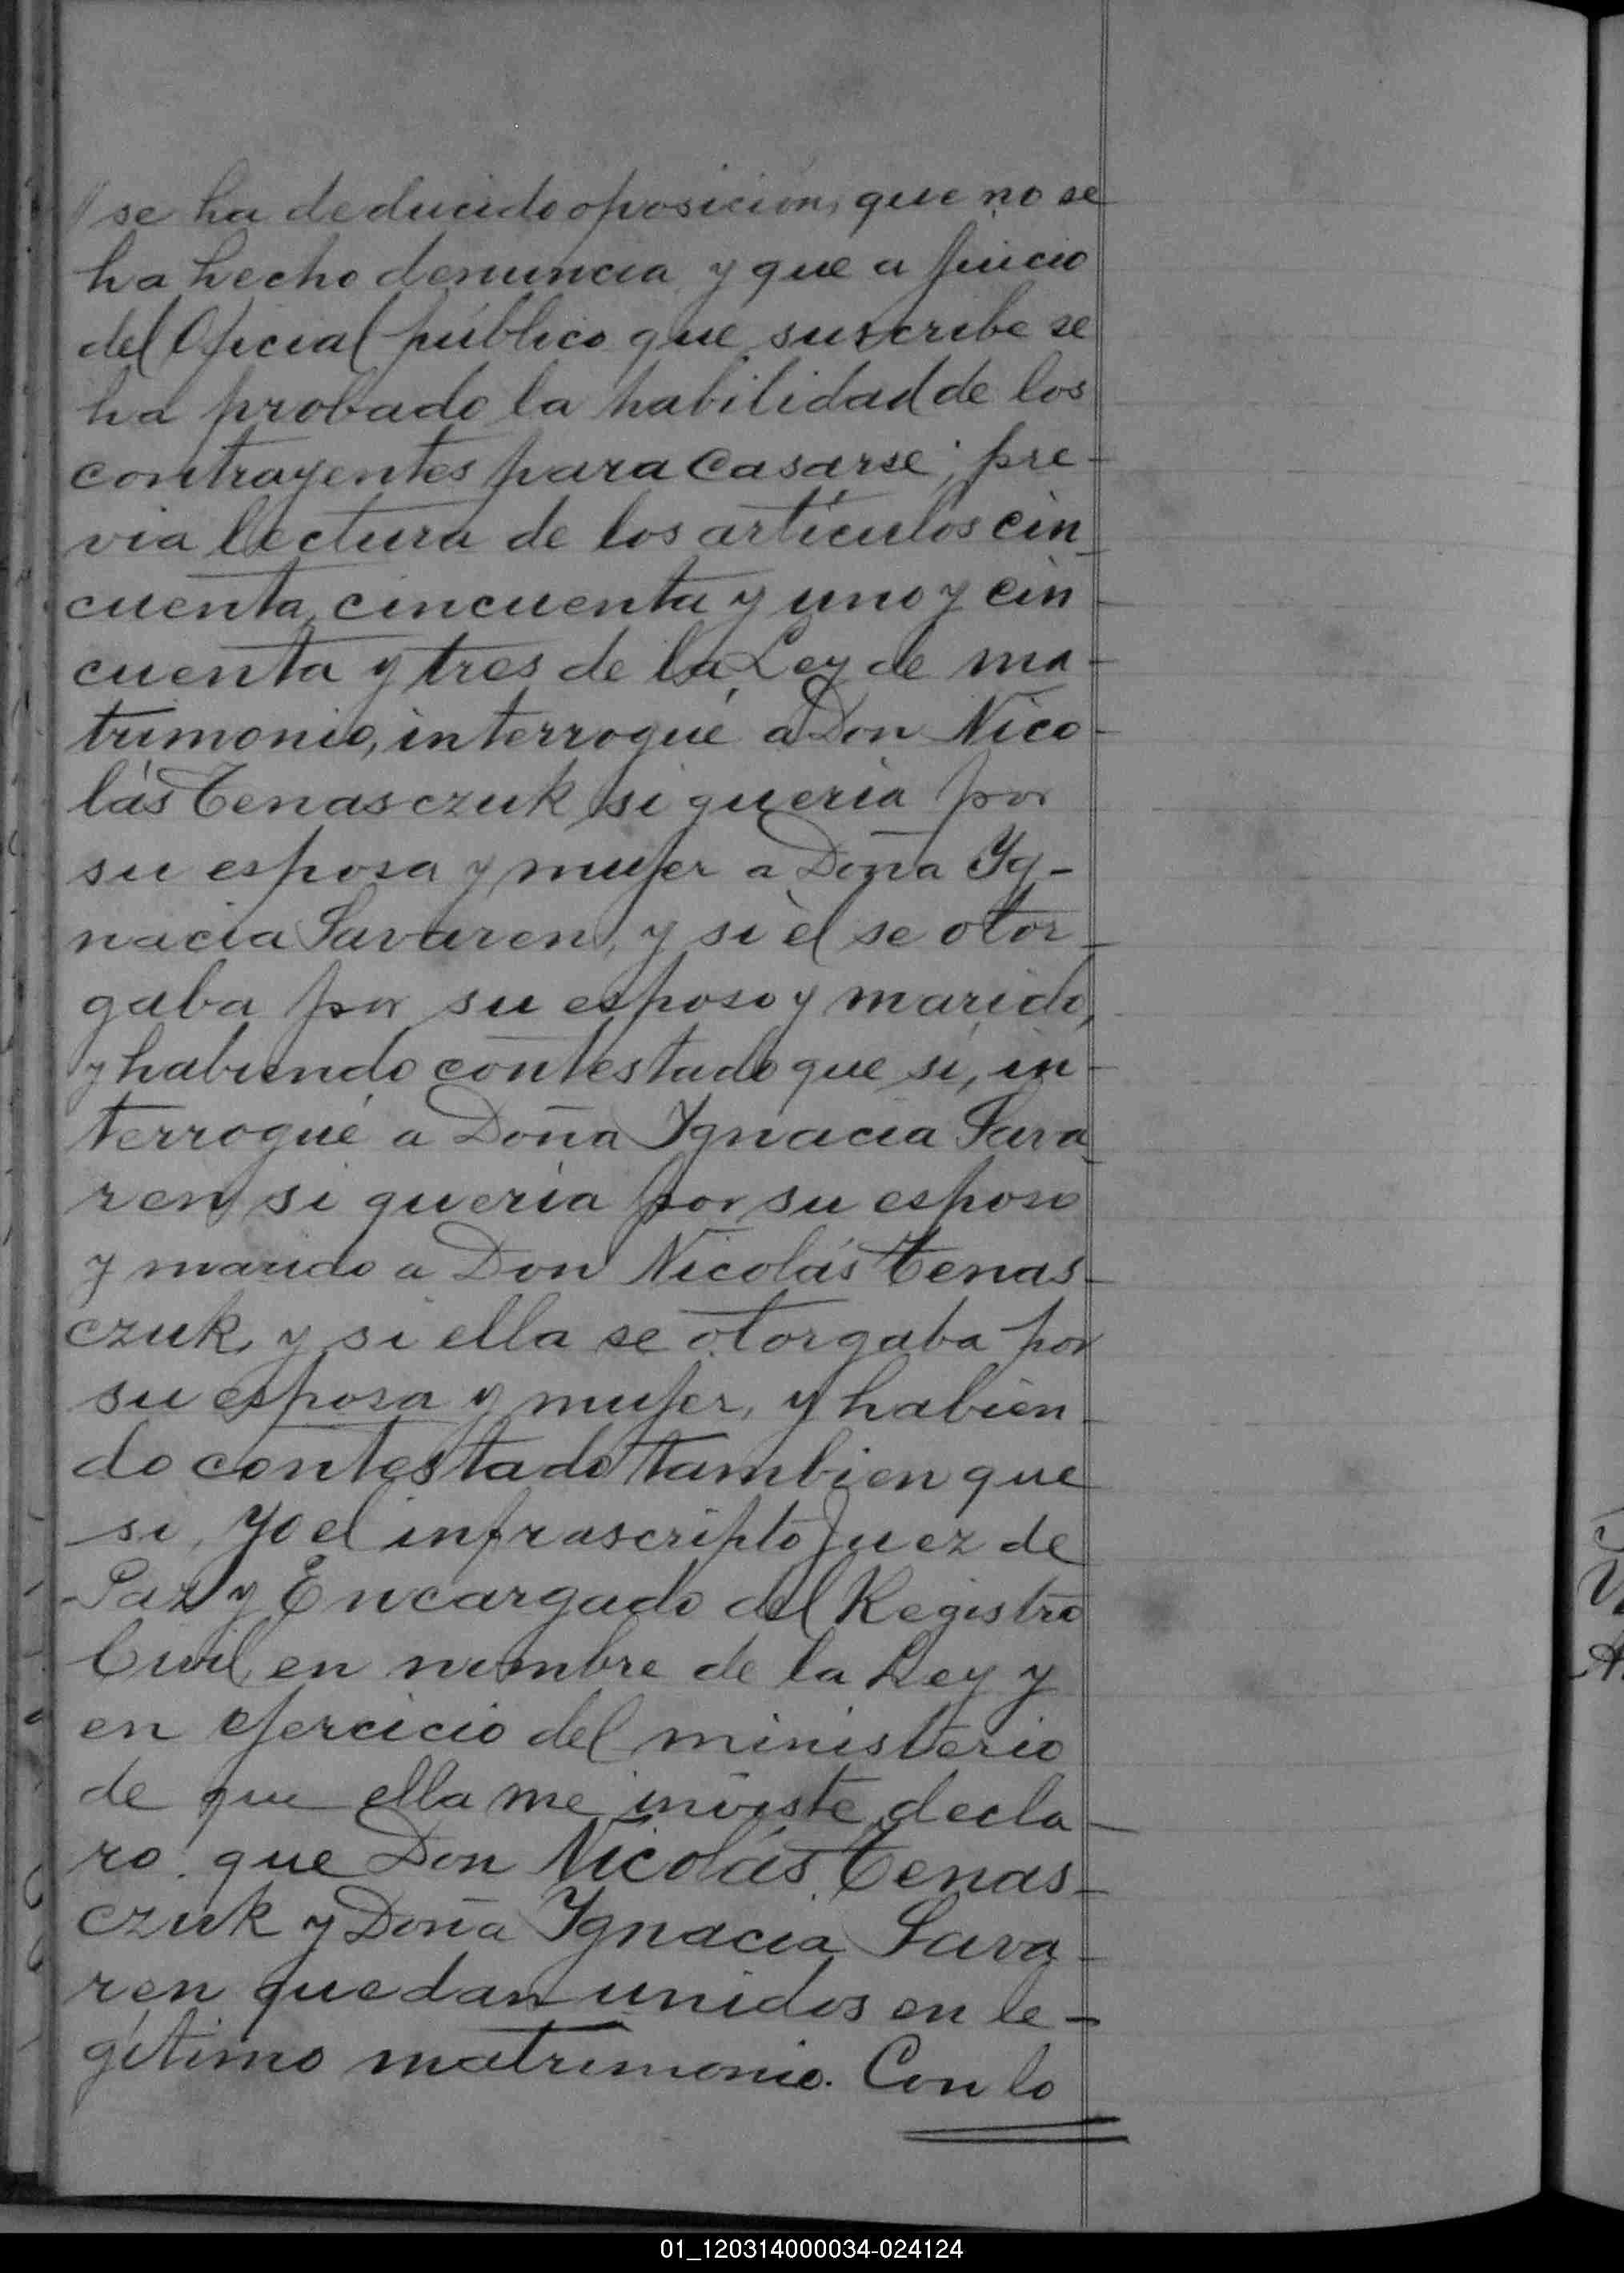 // se ha deducido oposición, que no se
ha hecho denuncia y que a juicio
del Oficial público que suscribe se
ha probado la habilidad de los
contrayentes para casarse; pre-
via lectura de los artículos cin-
cuenta, cincuenta y uno y cin-
cuenta y tres de la Ley de ma-
trimonio, interrogué a Don Nico-
lás Tenasczuk si quería por
su esposa y mujer a Doña Yg-
nacia Savaren, y si él se otor-
gaba por su esposo y marido,
y habiendo contestado que si, in-
terrogué a Doña Ygnacia Sava-
ren si quería por su esposo
y marido a Don Nicolás Tenas-
czuk, y si ella se otorgaba por
su esposa y mujer, y habien-
do contestado tambien que
si, Yo el infrascripto Juez de
Paz y Encargado del Registro
Civil en nombre de la Ley y
en ejercicio del ministerio
de que ella me inviste, decla-
ro: que Don Nicolás Tenas-
czuk y Doña Ygnacia Sava-
ren quedan unidos en le-
gítimo matrimonio. Con lo
01_120314000034-024124